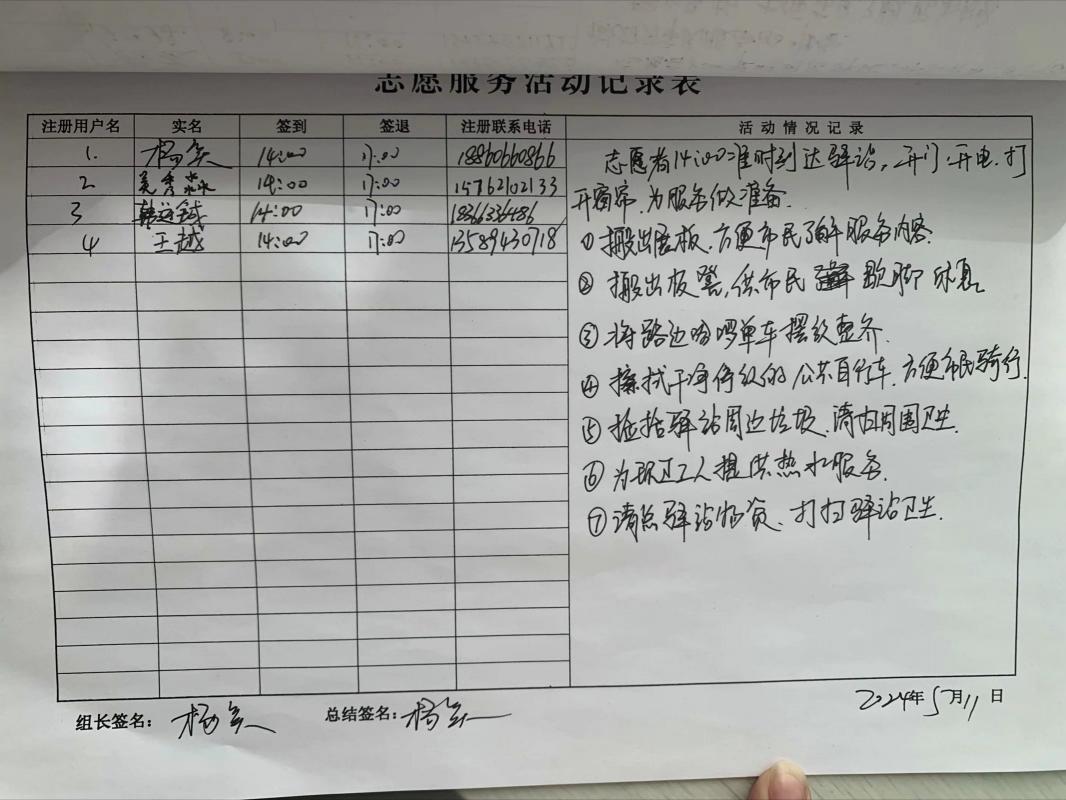 志愿服务活动记录表
注册用户名 实名 签到 签退 注册联系电话 活动情况记录
1. 杨 14:00 17:00 18860660866
2 秀 14:00 17:00 15762102133
3 韩 14:00 17:00 1836636486
4 王越 14:00 17:00 13589430718
志愿者14:00准时到达驿站,开门、开电、打
开窗帘,为服务做准备.
① 搬出展板、方便市民了解服务内容.
② 搬出板凳,供市民歇脚休息
③ 将路边哈啰单车摆放整齐.
④ 擦拭干净停放的公共自行车,方便市民骑行.
⑤ 捡拾驿站周边垃圾、清扫周围卫生.
⑥ 为环卫工人提供热水服务.
⑦ 清点驿站物资、打扫驿站卫生.
2024年5月11日
组长签名: 杨 总结签名: 杨